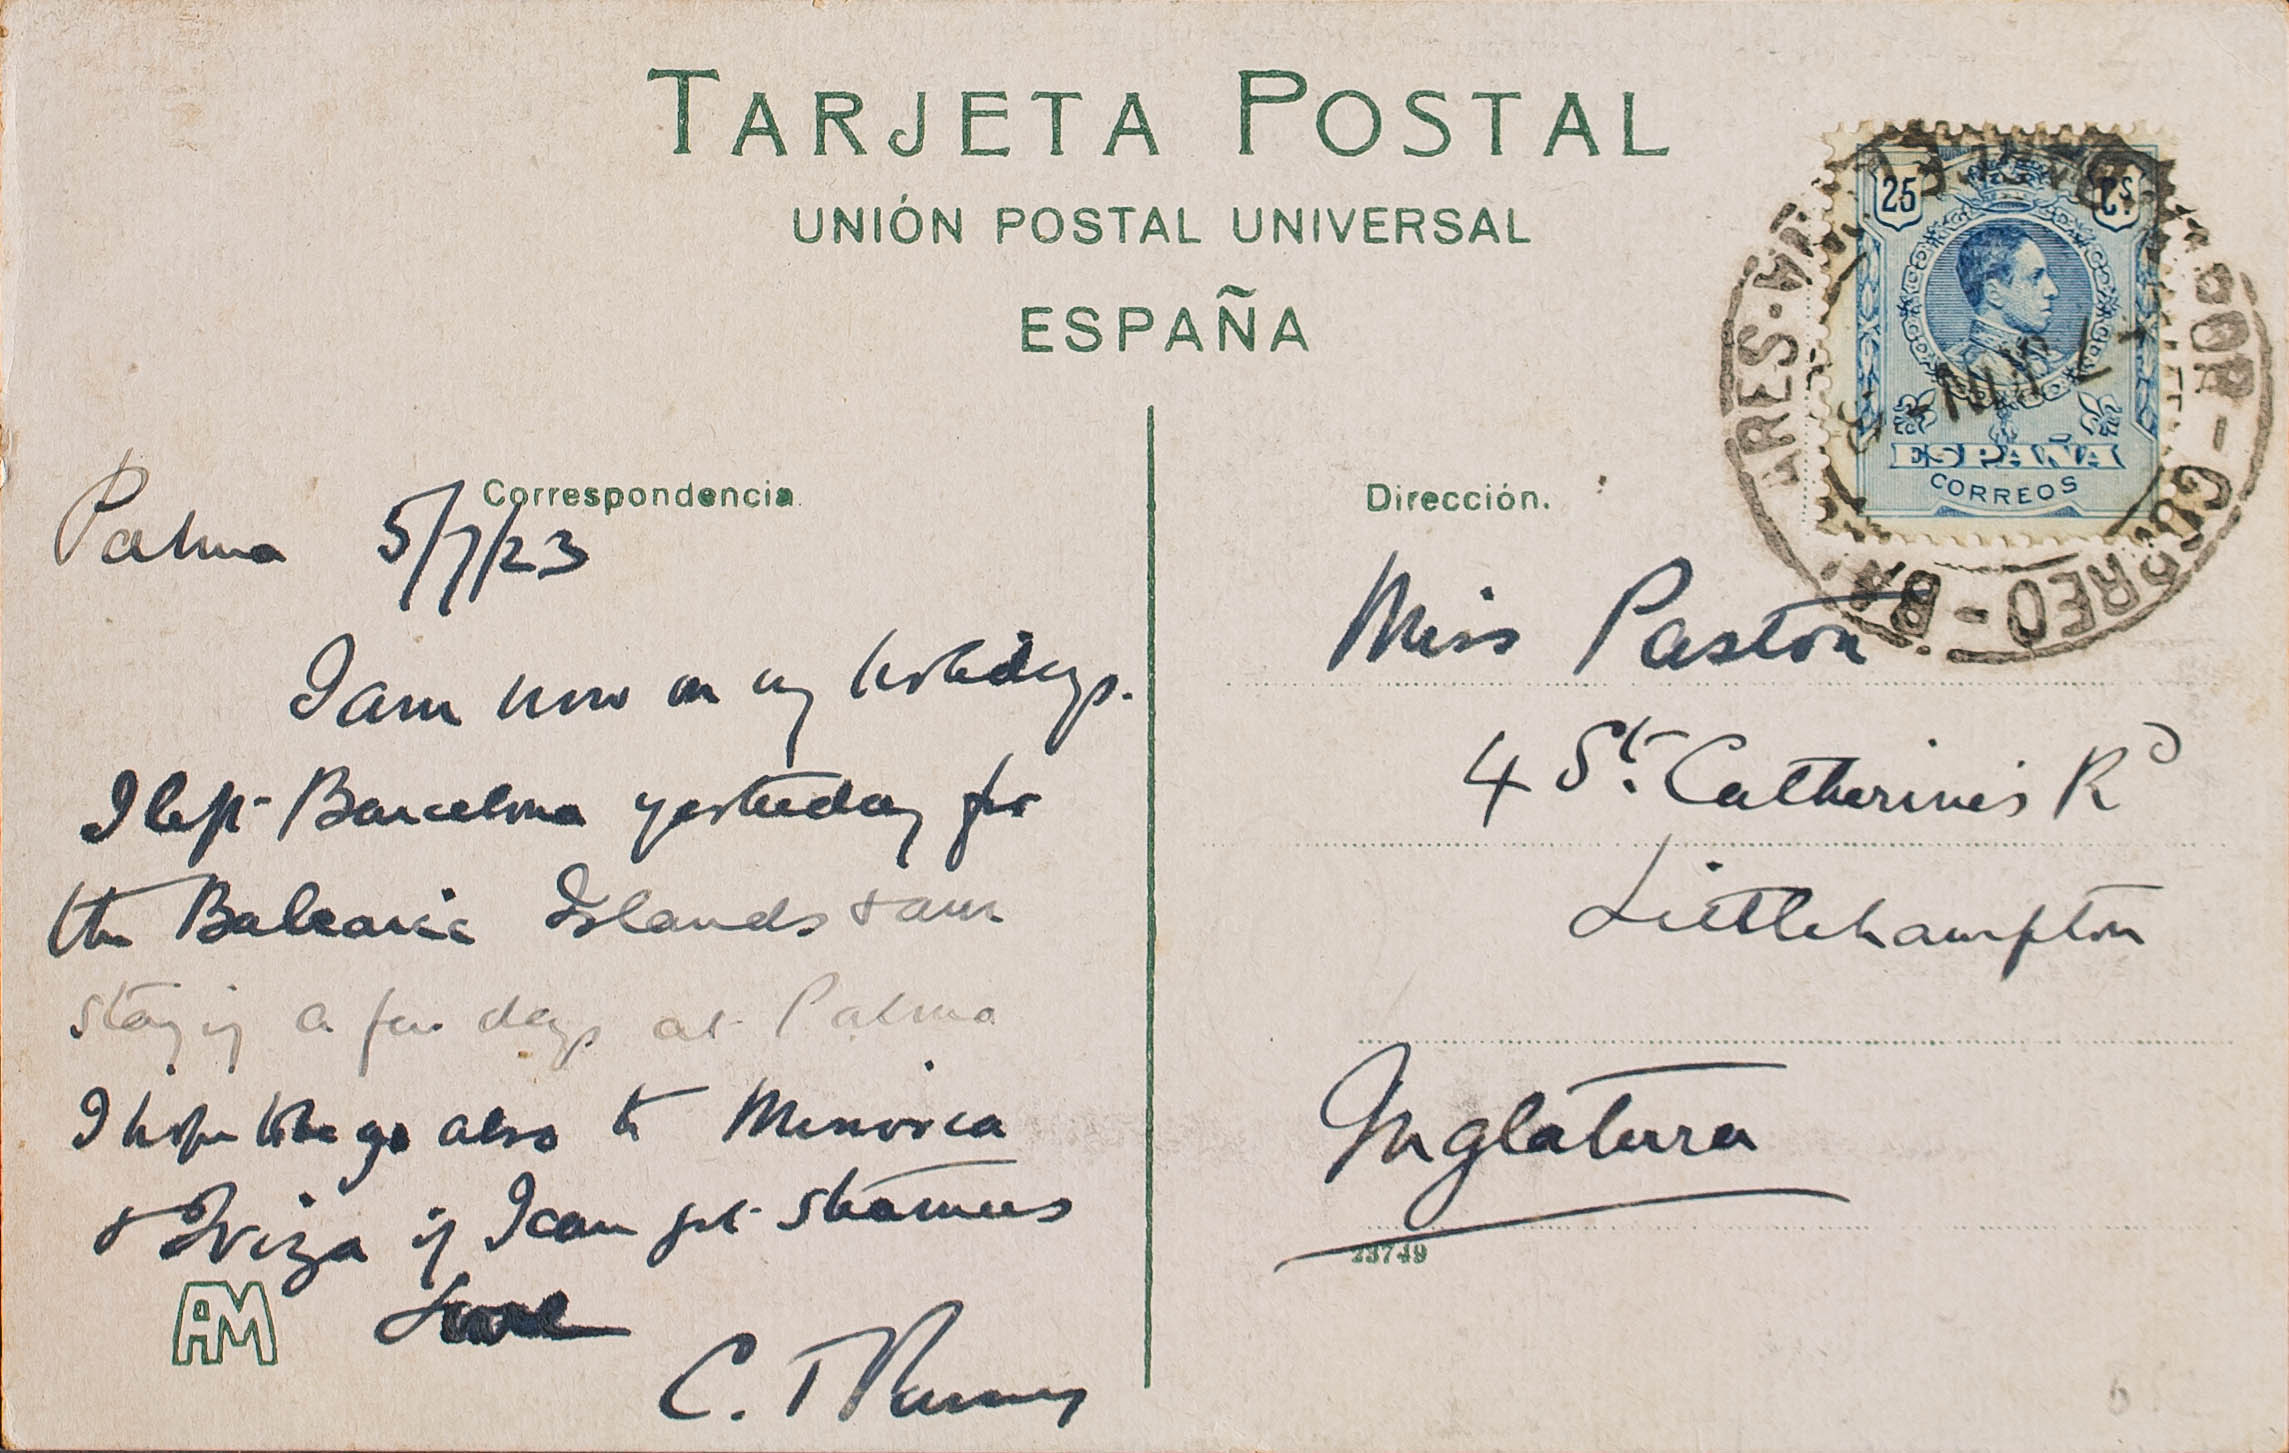 TARJETA POSTAL
UNIÓN POSTAL UNIVERSAL
ESPAÑA
25 Cs
ESPAÑA
CORREOS
CORREO - BA
ARES
Correspondencia
Palma 5/7/23
I am now on my holidays.
I left Barcelona yesterday for
the Balearic Islands & am
staying a few days at Palma
I hope to go also to Minorca
& Iviza if I can get steamers
Love
C. T.
AM
Dirección.
Miss Paston
4 St. Catherine's Rd
Littlehampton
Inglaterra
23749
6